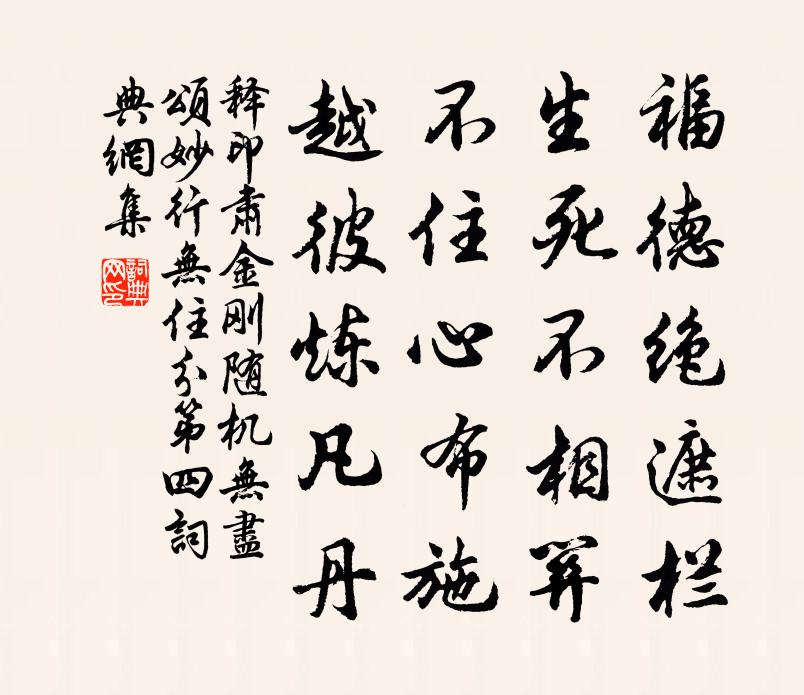 福德绝遮栏
生死不相关
不住心布施
越彼炼凡丹
释印肃金刚随机無盡
頌妙行無住分第四詞
典網集
詞典网印